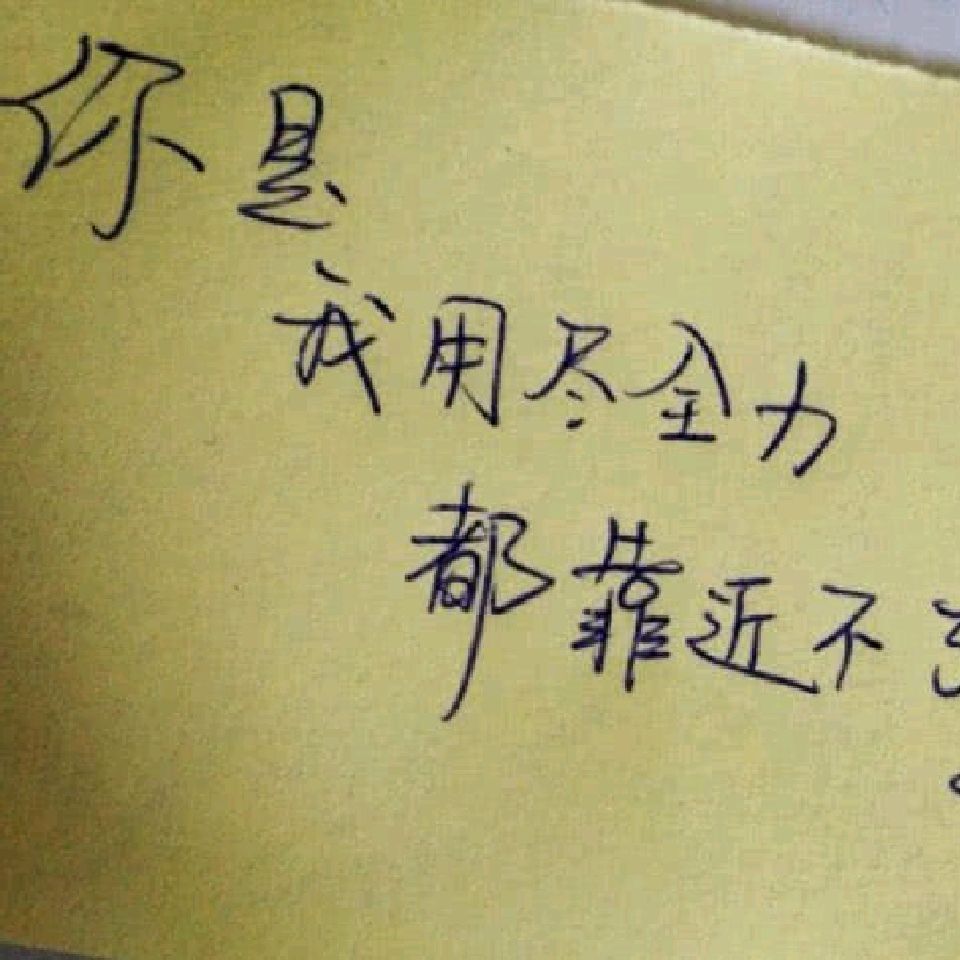 你是
我用尽全力
都靠近不